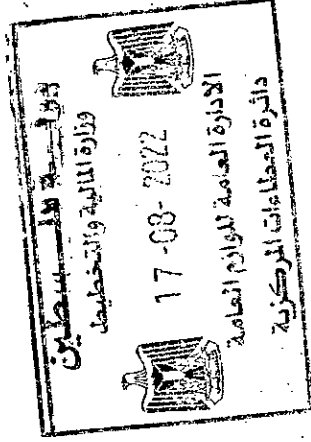 دولة فلسطين
وزارة المالية والتخطيط
17-08-2022
الادارة العامة للوازم العامة
دائرة العطاءات المركزية